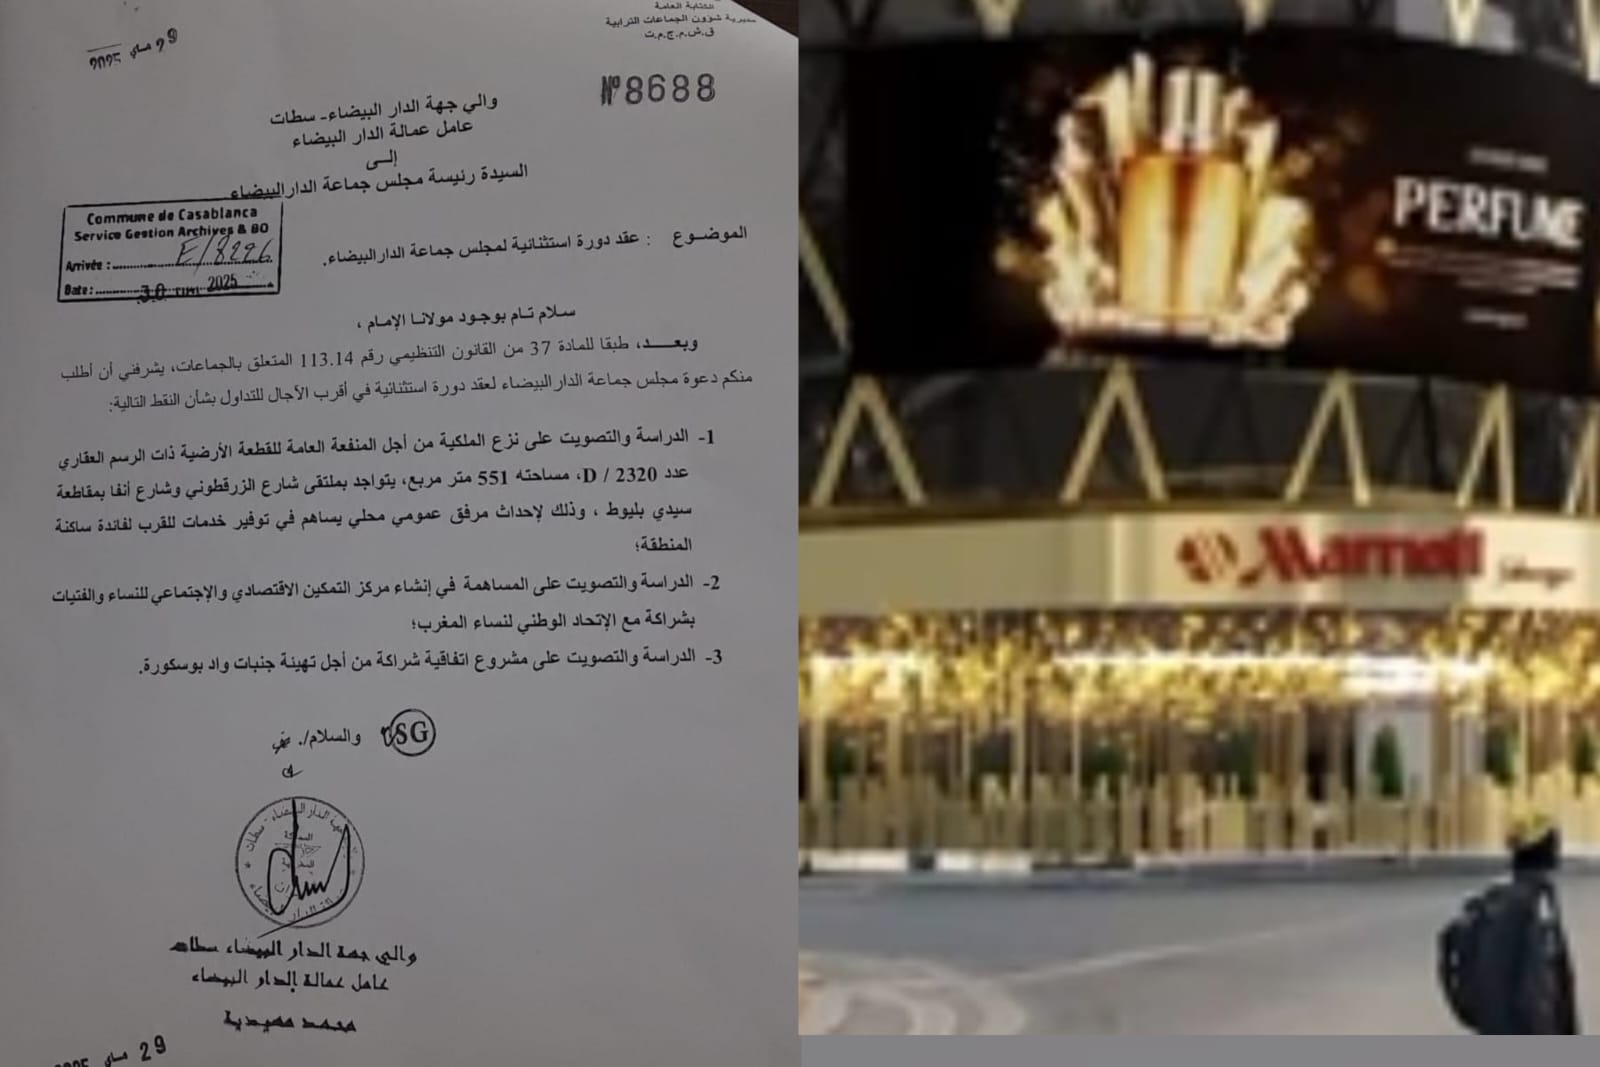 الكتابة العامة
مديرية شؤون الجماعات الترابية
ق.ش.م.ج.م.ت
29 ماي 2025
Nº 8688
والي جهة الدار البيضاء- سطات
عامل عمالة الدار البيضاء
إلى
السيدة رئيسة مجلس جماعة الدار البيضاء
Commune de Casablanca
Service Gestion Archives & BO
Arrivée : E/8226
Date : 30 2025
الموضوع : عقد دورة استثنائية لمجلس جماعة الدار البيضاء.
سلام تام بوجود مولانا الإمام ،
وبعد، طبقا للمادة 37 من القانون التنظيمي رقم 113.14 المتعلق بالجماعات، يشرفني أن أطلب
منكم دعوة مجلس جماعة الدار البيضاء لعقد دورة استثنائية في أقرب الآجال للتداول بشأن النقط التالية:
1- الدراسة والتصويت على نزع الملكية من أجل المنفعة العامة للقطعة الأرضية ذات الرسم العقاري
عدد 2320 / D، مساحته 551 متر مربع، يتواجد بملتقى شارع الزرقطوني وشارع أنفا بمقاطعة
سيدي بليوط ، وذلك لإحداث مرفق عمومي محلي يساهم في توفير خدمات للقرب لفائدة ساكنة
المنطقة؛
2- الدراسة والتصويت على المساهمة في إنشاء مركز التمكين الاقتصادي والإجتماعي للنساء والفتيات
بشراكة مع الإتحاد الوطني لنساء المغرب؛
3- الدراسة والتصويت على مشروع اتفاقية شراكة من أجل تهيئة جنبات واد بوسكورة.
والسلام/.
SG
والي جهة الدار البيضاء سطات
عامل عمالة الدار البيضاء
محمد مهيدية
29 ماي
PERFUME
Marriott